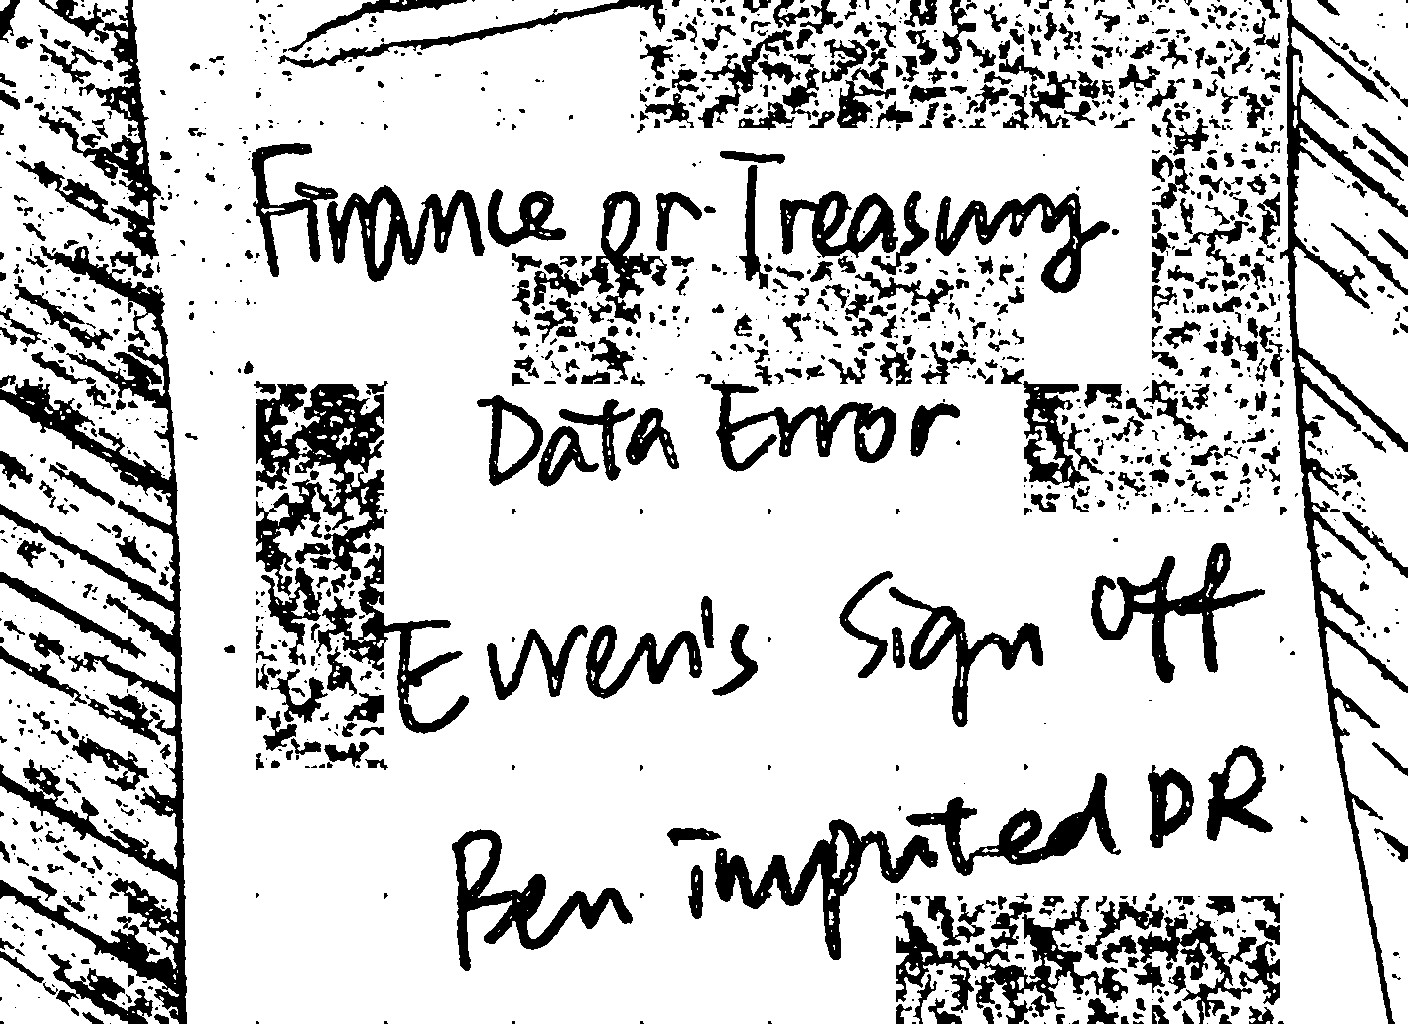 Finance or Treasury
Data Error
Evren's Sign off
Ben imputed DR